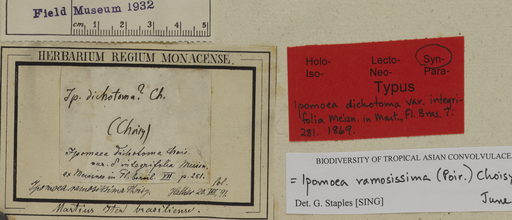 Field Museum 1932
cm 1 2 3 4 5
HERBARIUM REGIUM MONACENSE.
Ip. dichotoma? Ch.
(Choisy)
Ipomoea dichotoma Chois.
var. δ integrifolia Meissn.
ex Meissner in Fl. brasil. VII p. 281.
Ipomoea ramosissima Choisy.
Hallier
Martius Iter brasiliense.
Holo- Lecto- Syn-
Iso- Neo- Para-
Typus
Ipomoea dichotoma var. integri-
folia Meisn. in Mart., Fl. Bras. 7:
281. 1869.
BIODIVERSITY OF TROPICAL ASIAN CONVOLVULACE
= Ipomoea ramosissima (Poir.) Choisy
Det. G. Staples [SING] June